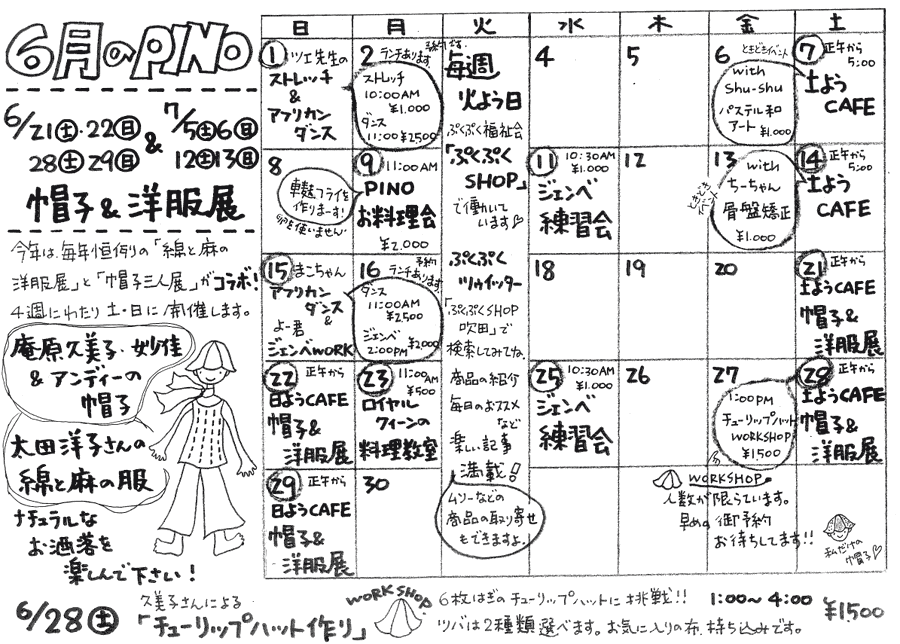 6月のPINO
6/21土・22日 & 7/5土6日
28土29日 12土13日
帽子&洋服展
今年は、毎年恒例の「綿と麻の
洋服展」と「帽子三人展」がコラボ!
4週にわたり土・日に開催します。
庵原久美子・妙佳
&アンディーの
帽子
太田洋子さんの
綿と麻の服
ナチュラルな
お洒落を
楽しんで下さい!
日 月 火 水 木 金 土
1 ツエ先生の
ストレッチ
&
アフリカン
ダンス
2 ランチあります
ストレッチ
10:00AM
¥1.000
ダンス
11:00 ¥2500
毎週
火よう日
ぷくぷく福祉会
「ぷくぷく
SHOP」
で働いて
います♡
ぷくぷく
ツゥイッター
「ぷくぷくSHOP
吹田」で
検索してみてね。
商品の紹介
毎日のおススメ
など
楽しい記事
満載!
ムソーなどの
商品の取り寄せ
もできますよ。
4
5
6 ときどきイベント
with
Shu-shu
パステル和
アート
¥1.000
7 正午から
5:00
土よう
CAFE
8
車麩フライを
作りまーす!
卵を使いません
9 11:00AM
PINO
お料理会
¥2.000
11 10:30AM
¥1.000
ジェンベ
練習会
12
13 ときどきイベント
with
ちーちゃん
骨盤矯正
¥1.000
14 正午から
5:00
土よう
CAFE
15 まこちゃん
アフリカン
ダンス
&
よー君
ジェンベWORK
16 予約
ランチあります
ダンス
11:00AM
¥2500
ジェンベ
2:00PM ¥2000
18
19
20
21 正午から
土ようCAFE
帽子&
洋服展
22 正午から
日ようCAFE
帽子&
洋服展
23 11:00AM
¥500
ロイヤル
クィーンの
料理教室
25 10:30AM
¥1.000
ジェンベ
練習会
26
27
1:00PM
チューリップハット
WORKSHOP
¥1500
28 正午から
土ようCAFE
帽子&
洋服展
29 正午から
日ようCAFE
帽子&
洋服展
30
WORKSHOP
人数が限らています。
早めに御予約
お待ちしてます!!
私だけの
帽子♡
6/28土
久美子さんによる
「チューリップハット作り」
WORKSHOP
6枚はぎのチューリップハットに挑戦!! 1:00〜4:00 ¥1500
ツバは2種類選べます。お気に入りの布、持ち込みです。